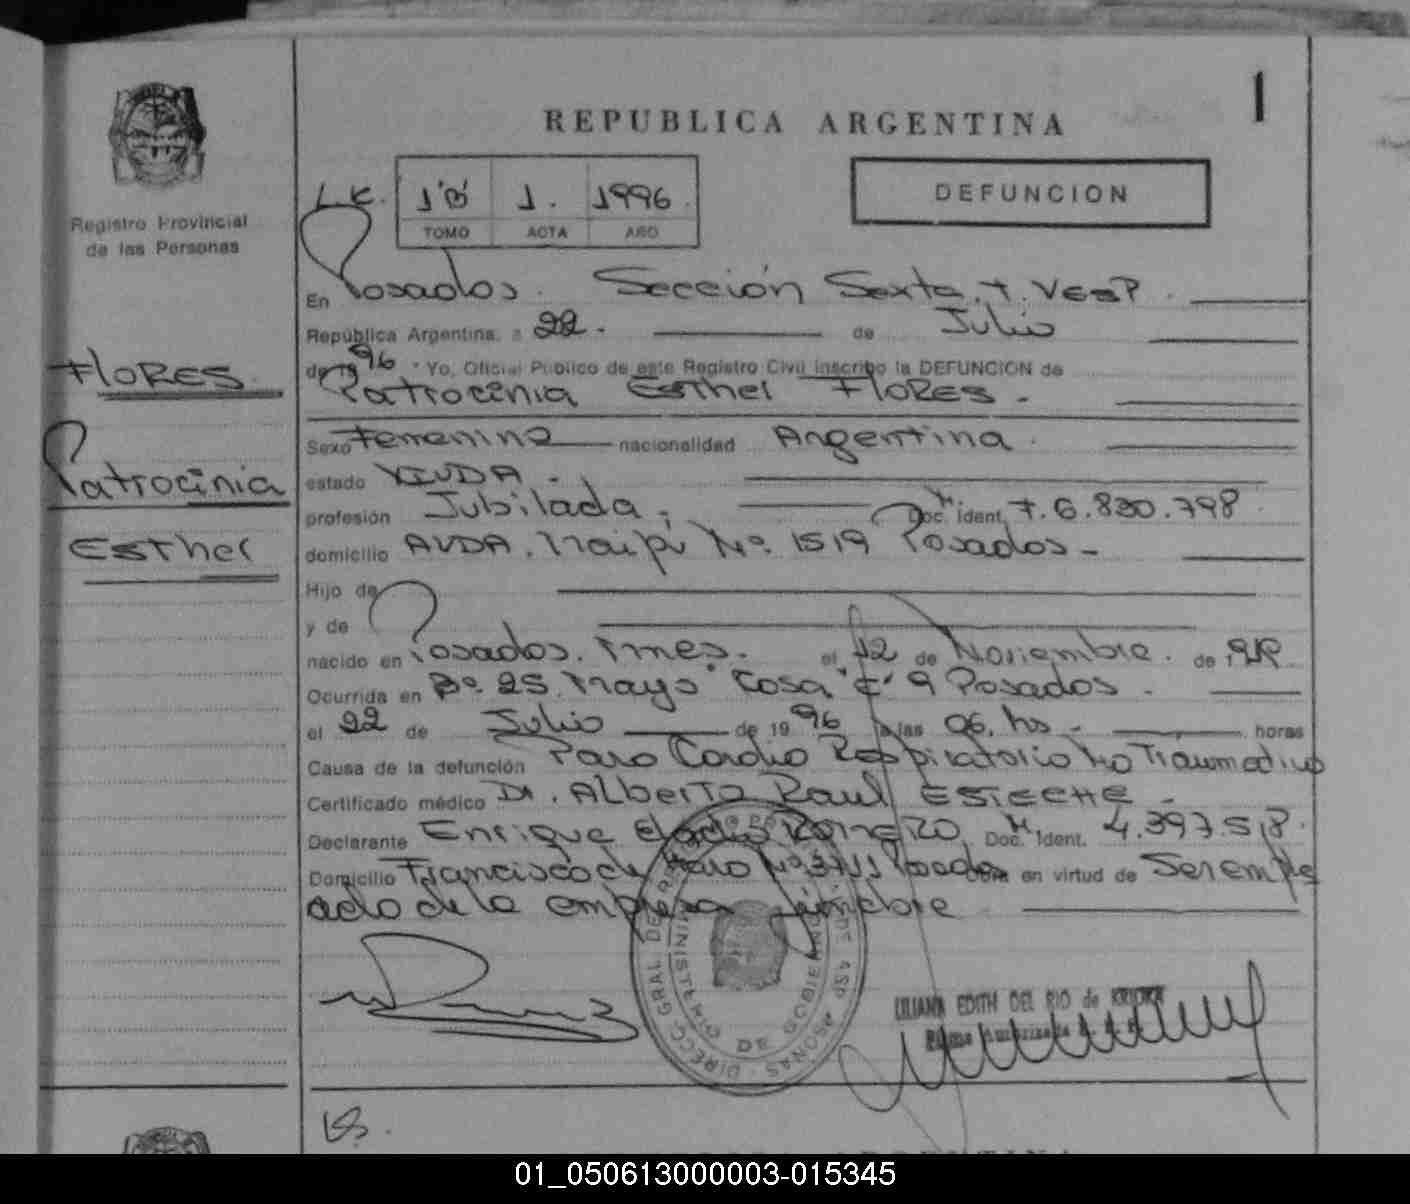 1
REPUBLICA ARGENTINA
DEFUNCION
L.K. 1'B' 1. 1996
TOMO ACTA AÑO
Registro Provincial
de las Personas
FLORES
Patrocinia
Esther
En Posadas. Sección Sexta.
República Argentina, a 22. de Julio
de 1996 Yo, Oficial Público de este Registro Civil inscribo la DEFUNCION de
Patrocinia Esther FLORES.
Sexo Femenino nacionalidad Argentina.
estado VIUDA.
profesión Jubilada. Doc. Ident. 6.830.798
domicilio AVDA. Maipú No. 1519 Posadas
Hijo de
y de
nacido en Posadas. Mnes. el 12 de Noviembre. de
Ocurrida en Bo. 25 Mayo Casa 9 Posadas.
el 22 de Julio de 1996 a las 06. hs horas
Causa de la defunción Paro Cardio Respiratorio No Traumatico
Certificado médico Dr. Alberto Raul ESTECHE
Declarante Enrique Eladio Romero Doc. M. Ident. 4.397.518.
Domicilio Francisco de Haro Posadas Obra en virtud de Ser emple
ado de la empresa funebre
DIRECC. GRAL. DE PERSONAS
MINISTERIO DE GOBIERNO
LILIANA EDITH DEL RIO de
01_050613000003-015345